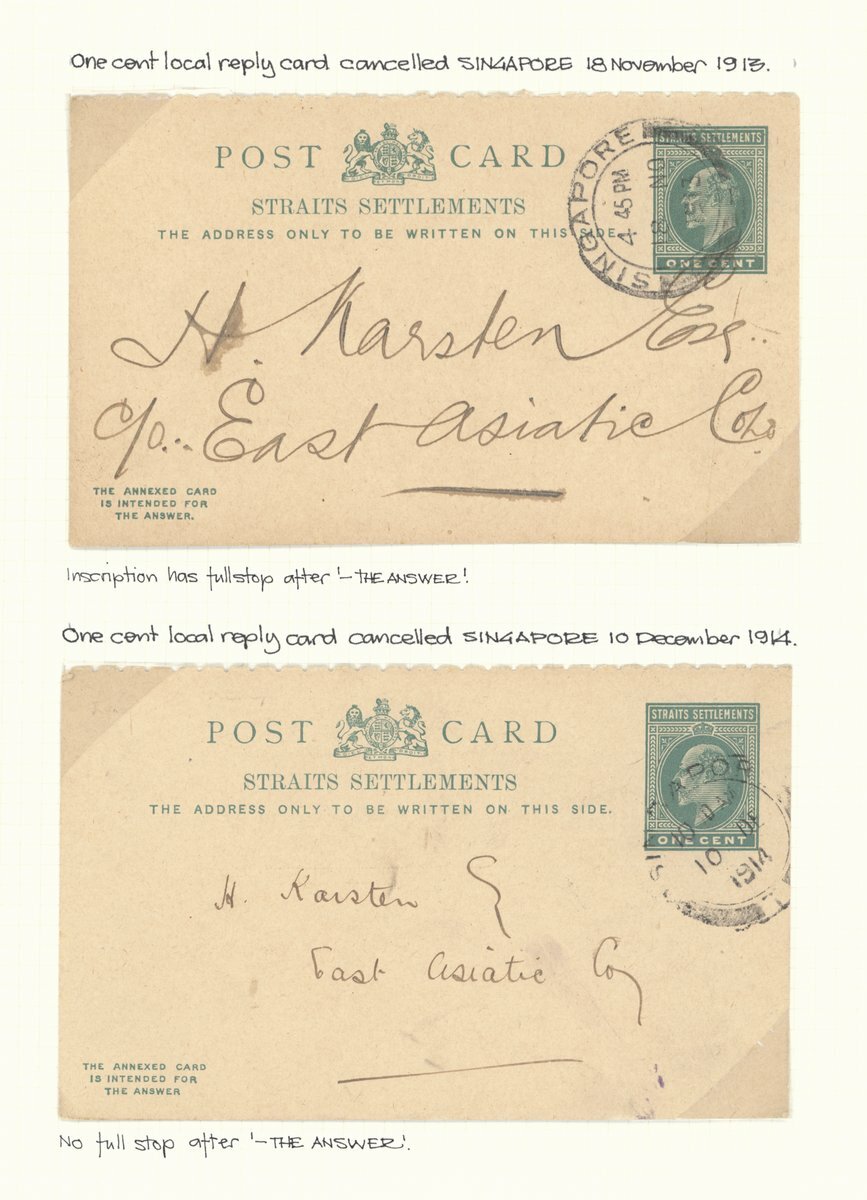 One cent local reply card cancelled SINGAPORE 18 November 1913.
POST CARD
STRAITS SETTLEMENTS
THE ADDRESS ONLY TO BE WRITTEN ON THIS SIDE.
STRAITS SETTLEMENTS
ONE CENT
SINGAPORE
4 45 PM
18 NO
H. Karsten Esq..
c/o... East Asiatic Co
THE ANNEXED CARD
IS INTENDED FOR
THE ANSWER.
Inscription has full stop after '-THE ANSWER'.
One cent local reply card cancelled SINGAPORE 10 December 1914.
POST CARD
STRAITS SETTLEMENTS
THE ADDRESS ONLY TO BE WRITTEN ON THIS SIDE.
STRAITS SETTLEMENTS
ONE CENT
10 DE
1914
H. Karsten
East Asiatic Coy
THE ANNEXED CARD
IS INTENDED FOR
THE ANSWER
No full stop after '-THE ANSWER'.